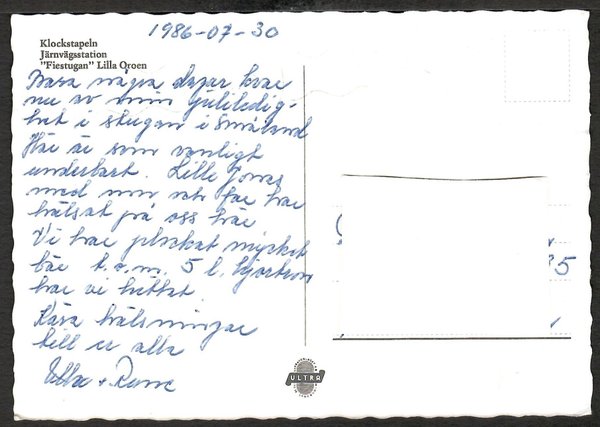 1986-07-30
Klockstapeln
Järnvägsstation
"Fiestugan" Lilla Qroen
Bara några dagar kvar
nu av min ledig-
het i stugan i Småland
Här är som vanligt
underbart. Lille Jonas
med mor och far har
hälsat på oss här
Vi har plockat mycket
bär t.o.m. 5 l. hjortron
har vi hittat
Kära hälsningar
till er alla
Ulla + Rune
5
ULTRA